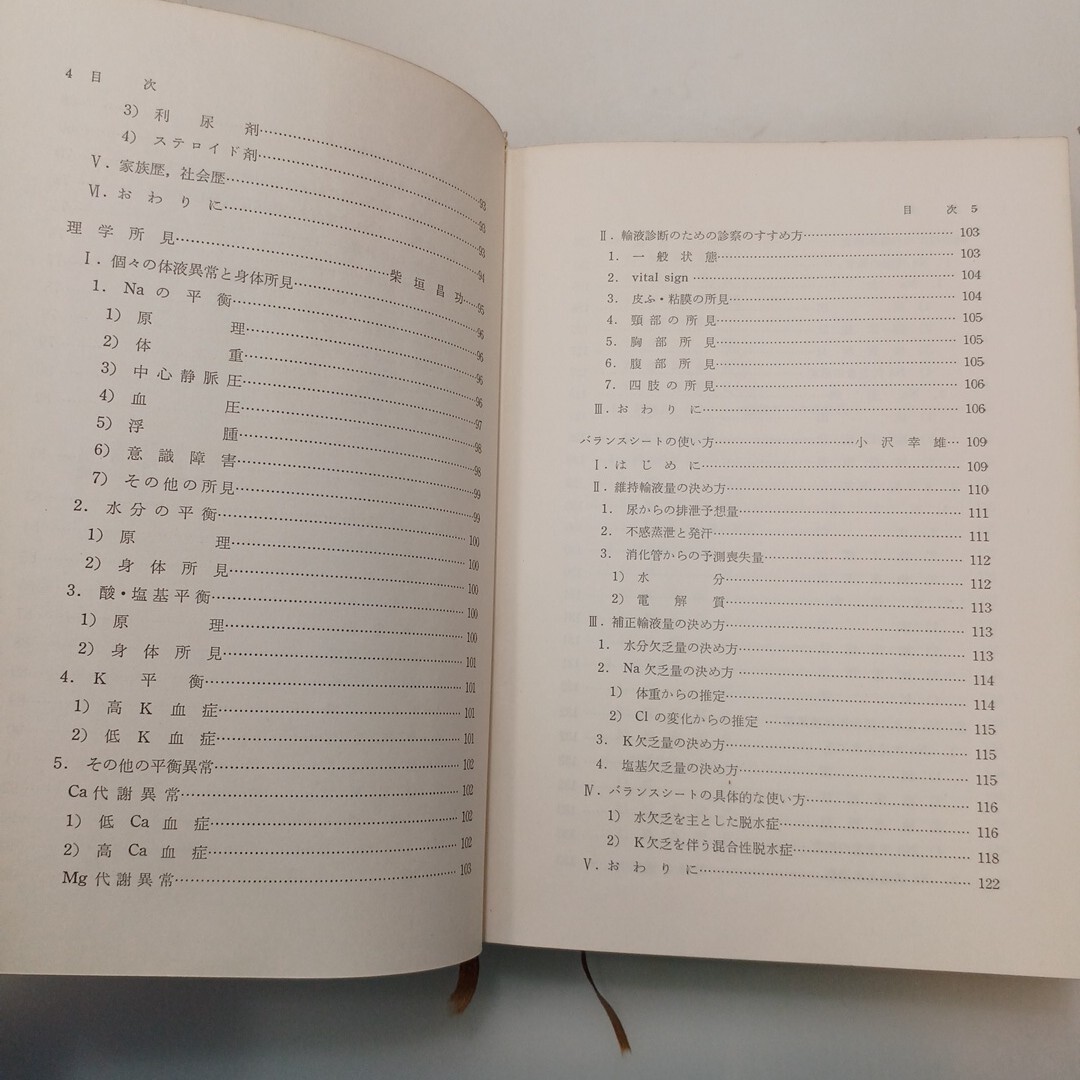 4 目 次
3) 利 尿 剤……93
4) ステロイド剤……93
Ⅴ. 家族歴, 社会歴……93
Ⅵ. お わ り に……94
理 学 所 見……柴 垣 昌 功……95
Ⅰ. 個々の体液異常と身体所見……96
1. Na の 平 衡……96
1) 原 理……96
2) 体 重……96
3) 中心静脈圧……97
4) 血 圧……98
5) 浮 腫……98
6) 意 識 障 害……99
7) その他の所見……99
2. 水 分 の 平 衡……100
1) 原 理……100
2) 身 体 所 見……100
3. 酸・塩基平衡……100
1) 原 理……100
2) 身 体 所 見……101
4. K 平 衡……101
1) 高 K 血 症……101
2) 低 K 血 症……101
5. その他の平衡異常……102
Ca 代 謝 異 常……102
1) 低 Ca 血 症……102
2) 高 Ca 血 症……102
Mg 代 謝 異 常……103
目 次 5
Ⅱ. 輸液診断のための診察のすすめ方……103
1. 一 般 状 態……103
2. vital sign……104
3. 皮ふ・粘膜の所見……104
4. 頸 部 の 所 見……105
5. 胸 部 所 見……105
6. 腹 部 所 見……105
7. 四 肢 の 所 見……106
Ⅲ. お わ り に……106
バランスシートの使い方……小 沢 幸 雄…109
Ⅰ. は じ め に……109
Ⅱ. 維持輸液量の決め方……110
1. 尿からの排泄予想量……111
2. 不感蒸泄と発汗……111
3. 消化管からの予測喪失量……112
1) 水 分……112
2) 電 解 質……113
Ⅲ. 補正輸液量の決め方……113
1. 水分欠乏量の決め方……113
2. Na 欠乏量の決め方……114
1) 体重からの推定……114
2) Cl の変化からの推定……115
3. K欠乏量の決め方……115
4. 塩基欠乏量の決め方……115
Ⅳ. バランスシートの具体的な使い方……116
1) 水欠乏を主とした脱水症……116
2) K欠乏を伴う混合性脱水症……118
Ⅴ. お わ り に……122